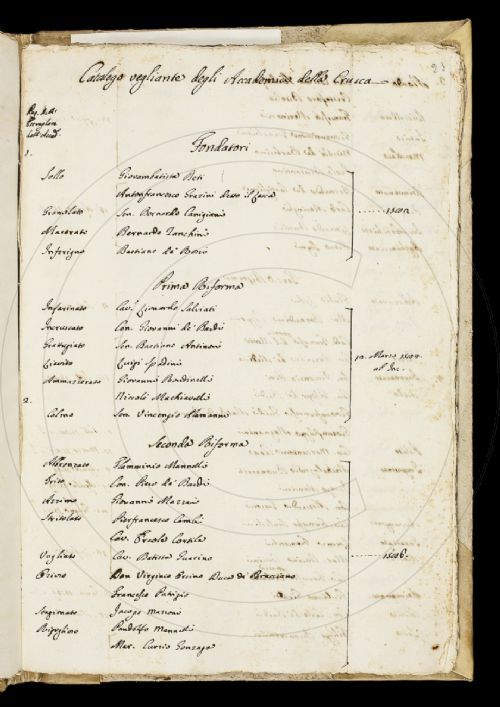 Catalogo vegliante degli Accademici della Crusca
Fondatori
1.
Sollo Giovambatista Deti
Antonfrancesco Grazini detto il Lasca
Gramolato Sen. Bernardo Canigiani
Macerato Bernardo Zanchini
Inferigno Bastiano de' Rossi
Prima Riforma
Infarinato Cav. Lionardo Salviati
Incrusciato Con. Giovanni de' Bardi
Grattugiato Sen. Bastiano Antinori
Luigi Spadini
Ammazzerato Giovanni Rondinelli
Nicolò Machiavelli
2.
Colmo Sen. Vincenzio Alamanni
Seconda Riforma
Abbronzato Flamminio Mannelli
Trito Con. Piero de' Bardi
Azzimo Giovanni Mazzei
Stritolato Pierfrancesco Cambi
Cav. Ercole Cortile
Vagliato Cav. Batista Guarino
Don Virginio Orsino Duca di Bracciano
Francesco Patrizio
Jacopo Mazzoni
Ripieno Pandolfo Mannelli
Mar. Curzio Gonzaga